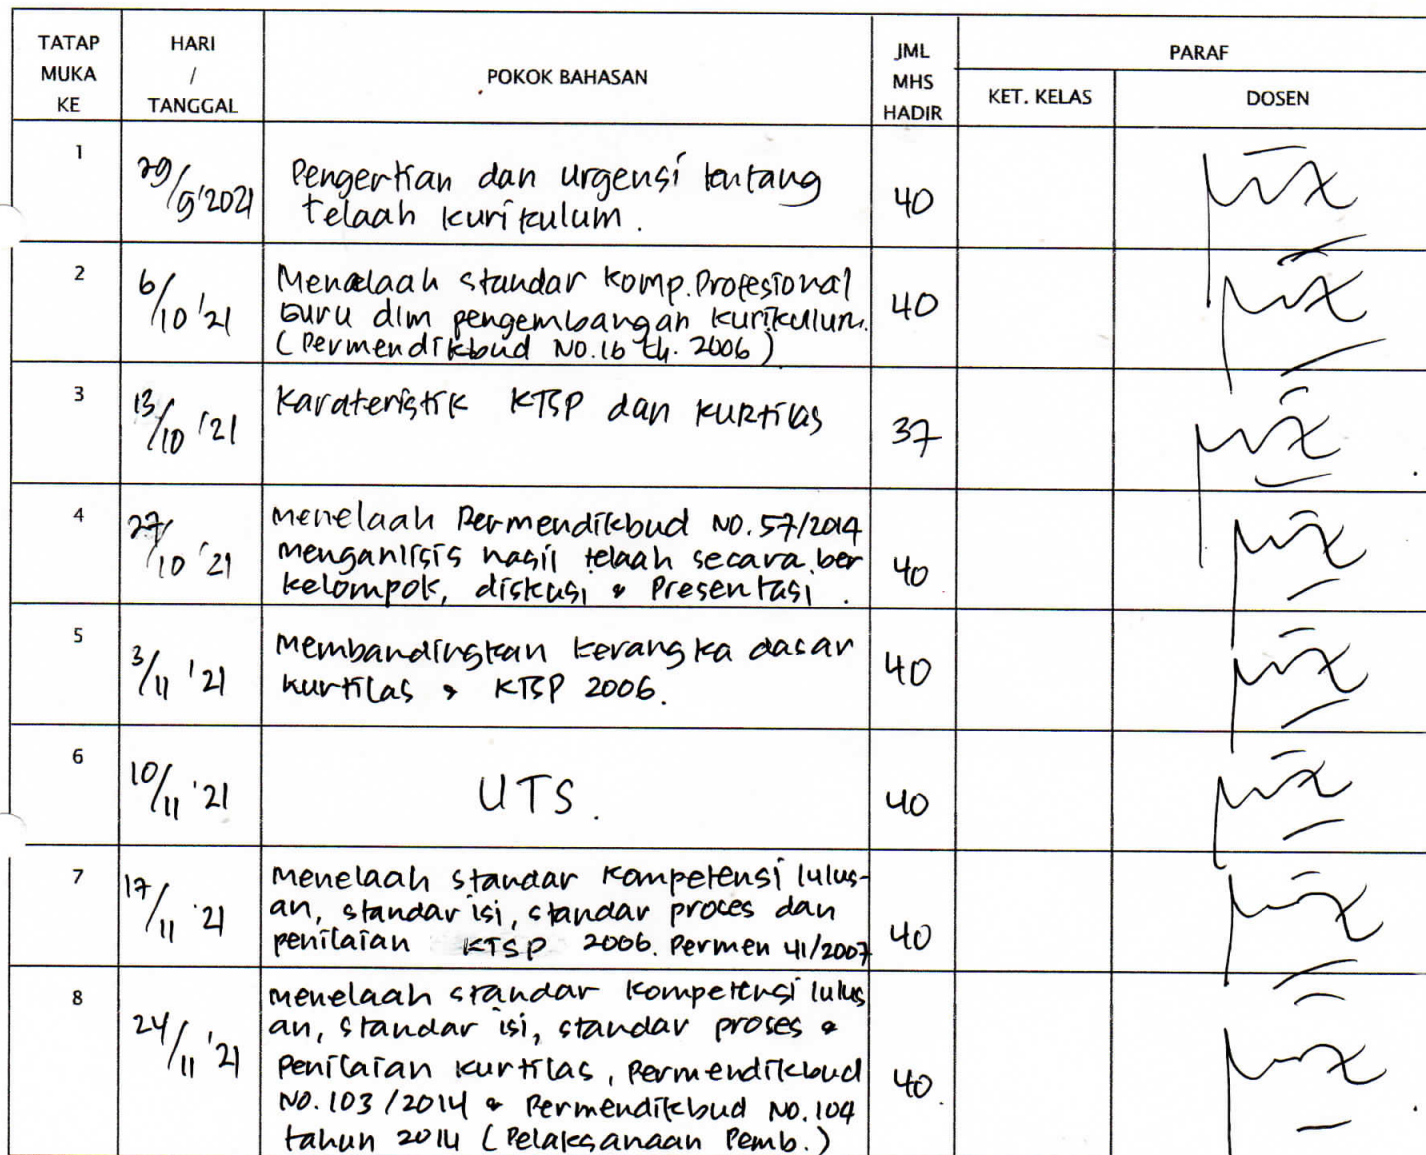 TATAP MUKA KE
HARI / TANGGAL
POKOK BAHASAN
JML MHS HADIR
PARAF
KET. KELAS
DOSEN
1
29/9'2021
Pengertian dan urgensi tentang
telaah kurikulum.
40
2
6/10 '21
Menelaah standar Komp. Profesional
Guru dlm pengembangan kurikulum.
(Permendikbud NO.16 th. 2006)
40
3
13/10 '21
Karateristik KTSP dan KURtilas
37
4
27/10 '21
menelaah Permendikbud NO.57/2014
menganlisis hasil telaah secara ber
kelompok, diskusi & Presentasi.
40
5
3/11 '21
membandingkan kerangka dasar
kurtilas & KTSP 2006.
40
6
10/11 '21
UTS.
40
7
17/11 '21
menelaah standar kompetensi lulus-
an, standar isi, standar proses dan
penilaian KTSP 2006. Permen 41/2007
40
8
24/11 '21
menelaah standar kompetensi lulus
an, standar isi, standar proses &
Penilaian kurtilas, Permendikbud
NO.103/2014 & Permendikbud NO.104
tahun 2014 (Pelaksanaan Pemb.)
40